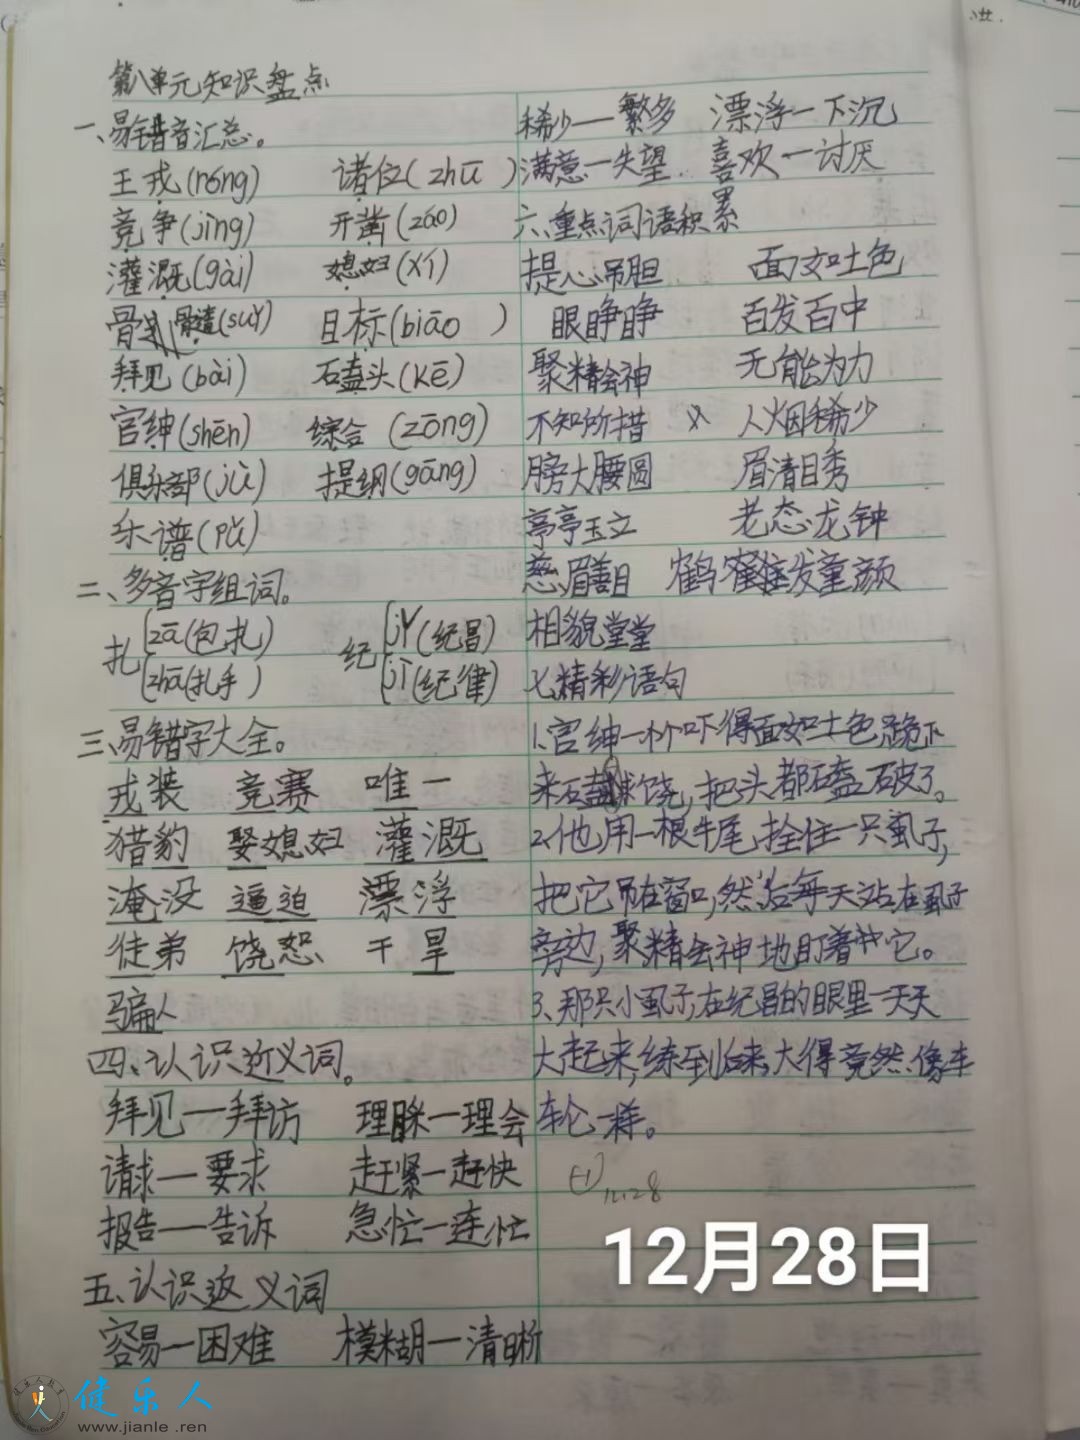 第八单元知识盘点
一、易错音汇总。
王戎(róng) 诸位(zhū)
竞争(jìng) 开凿(záo)
灌溉(gài) 媳妇(xí)
骨髓(suǐ) 目标(biāo)
拜见(bài) 磕头(kē)
官绅(shēn) 综合(zōng)
俱乐部(jù) 提纲(gāng)
乐谱(pǔ)
二、多音字组词。
扎 zā(包扎) 纪 jǐ(纪昌)
zhā(扎手) jì(纪律)
三、易错字大全。
戎装 竞赛 唯一
猎豹 娶媳妇 灌溉
淹没 逼迫 漂浮
徒弟 饶恕 干旱
骗人
四、认识近义词。
拜见—拜访 理睬—理会
请求—要求 赶紧—赶快
报告—告诉 急忙—连忙
五、认识返义词
容易—困难 模糊—清晰
稀少—繁多 漂浮—下沉
满意—失望 喜欢—讨厌
六、重点词语积累
提心吊胆 面如土色
眼睁睁 百发百中
聚精会神 无能为力
不知所措 人烟稀少
膀大腰圆 眉清目秀
亭亭玉立 老态龙钟
慈眉善目 鹤发童颜
相貌堂堂
七、精彩语句
1、官绅一个个吓得面如土色跪下
来磕头求饶,把头都磕破了。
2、他用一根牛尾,拴住一只虱子,
把它吊在窗口,然后每天站在虱子
旁边,聚精会神地盯着它。
3、那只小虱子,在纪昌的眼里一天天
大起来,练到后来,大得竟然像车
车轮一样。
12.28
12月28日
健乐人
www.jianle.ren